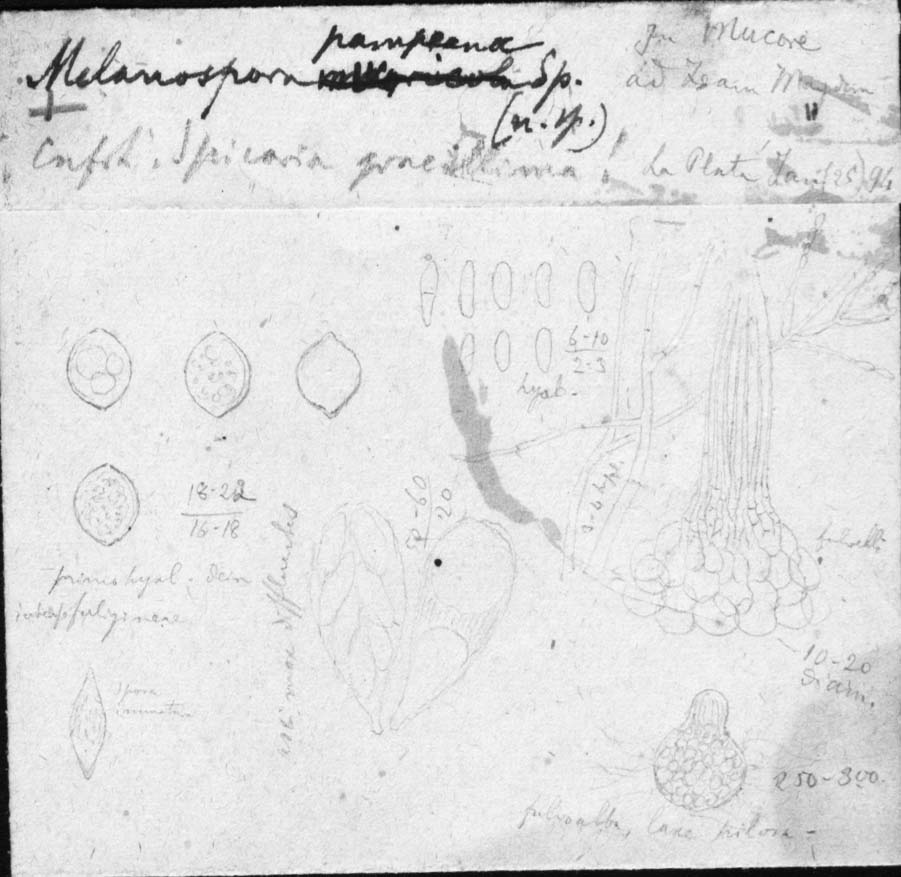 pampeana
Melanospora mucoricola Sp.
(n. sp.)
In Mucore
ad Zeam Maydem
Cnfrt. Spicaria gracillima!
La Plata Jan (25) 94
6-10
2-3
hyal.
18-22
16-18
primo hyal. dein
intense fuligineae
50-60
20
asci mox diffluentes
3-6 hyal.
10-20
diam.
spora
immatura
250-300.
fulvoalba, laxe pilosa -